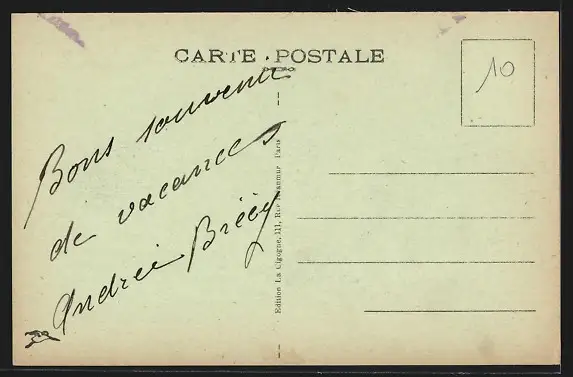 CARTE POSTALE
10
Bons souvenir
de vacances
Andrée
Edition La Cigogne, 111, Rue Paris